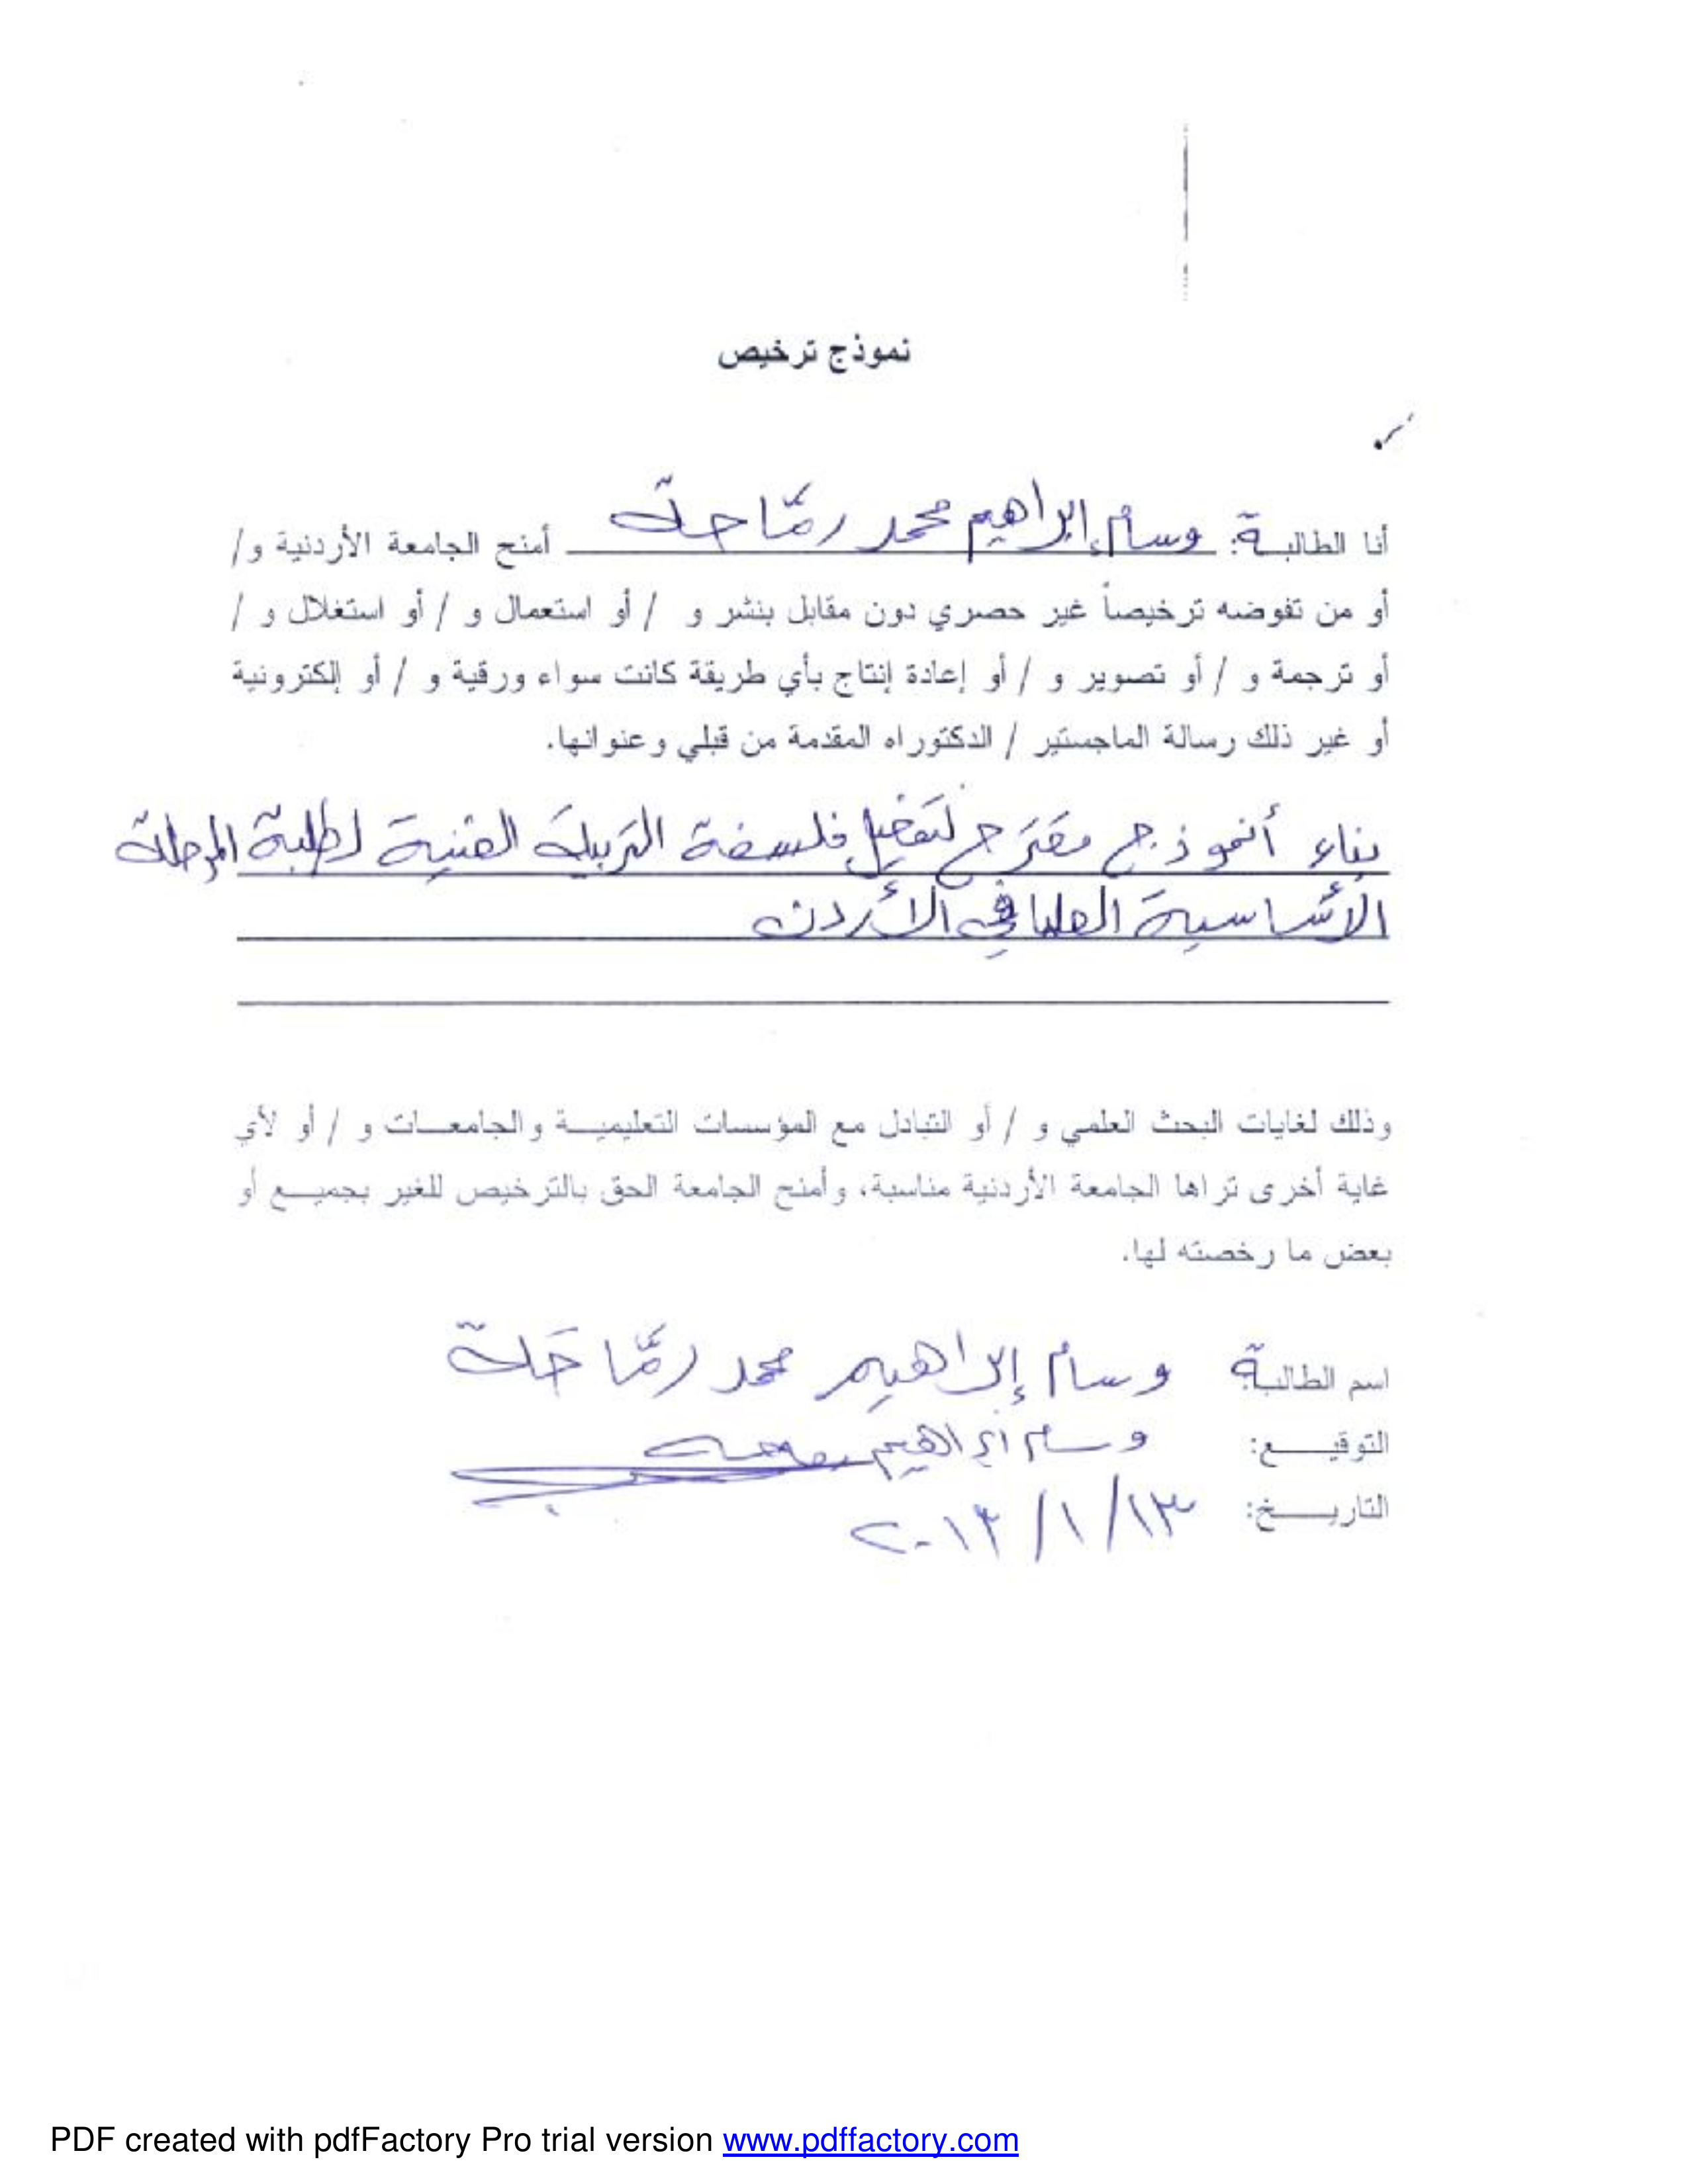 نموذج ترخيص
أنا الطالبة: وسام إبراهيم محمد رمّاحة أمنح الجامعة الأردنية و/
أو من تفوضه ترخيصاً غير حصري دون مقابل بنشر و / أو استعمال و / أو استغلال و /
أو ترجمة و / أو تصوير و / أو إعادة إنتاج بأي طريقة كانت سواء ورقية و / أو إلكترونية
أو غير ذلك رسالة الماجستير / الدكتوراه المقدمة من قبلي وعنوانها.
بناء أنموذج مقترح لتفعيل فلسفة التربية الفنية لطلبة المرحلة
الأساسية العليا في الأردن
وذلك لغايات البحث العلمي و / أو التبادل مع المؤسسات التعليمية والجامعات و / أو لأي
غاية أخرى تراها الجامعة الأردنية مناسبة، وأمنح الجامعة الحق بالترخيص للغير بجميع أو
بعض ما رخصته لها.
اسم الطالبة وسام إبراهيم محمد رمّاحة
التوقيع: وسام ابراهيم
التاريخ: ١٣/١/٢٠١٣
PDF created with pdfFactory Pro trial version www.pdffactory.com